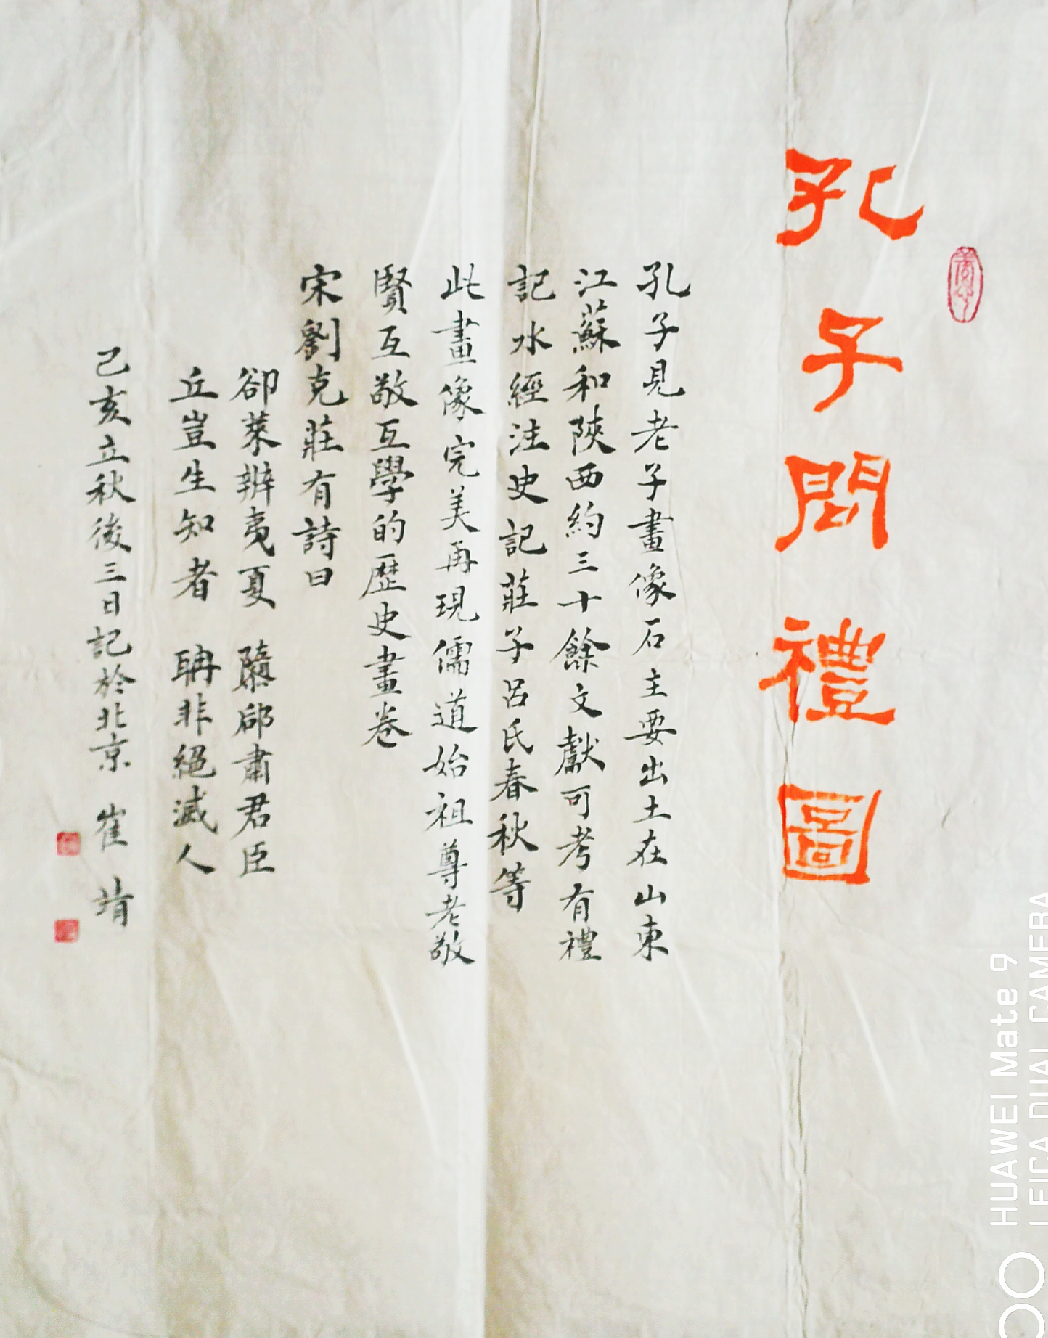 孔子問禮圖
孔子見老子畫像石主要出土在山東
江蘇和陝西約三十餘文獻可考有禮
記水經注史記莊子呂氏春秋等
此畫像完美再現儒道始祖尊老敬
賢互敬互學的歷史畫卷
宋劉克莊有詩曰
卻萊辨夷夏 隳郈肅君臣
丘豈生知者 聃非絕滅人
己亥立秋後三日記於北京 崔靖
HUAWEI Mate 9
LEICA DUAL CAMERA